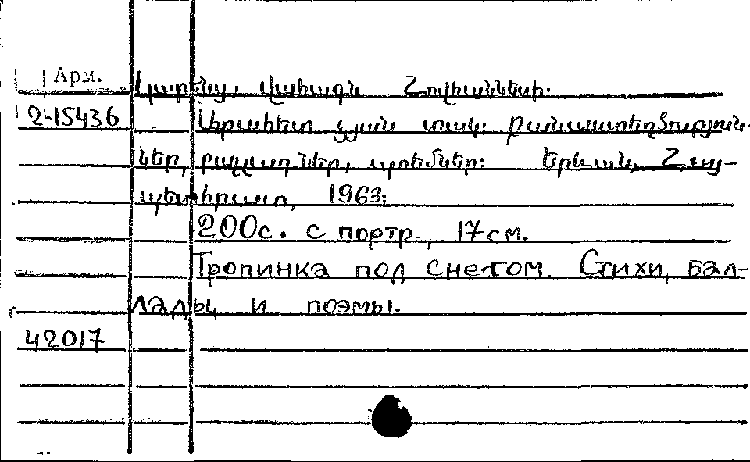 Арм.
Կարենց, Վահագն Հովհաննեսի.
2-15436 Արահետ ձյան տակ: Բանաստեղծություն-
ներ, բալլադներ, պոեմներ: Երևան, Հայ-
պետհրատ, 1963:
200с. с портр., 17см.
Тропинка под снегом. Стихи, бал-
лады и поэмы.
42017